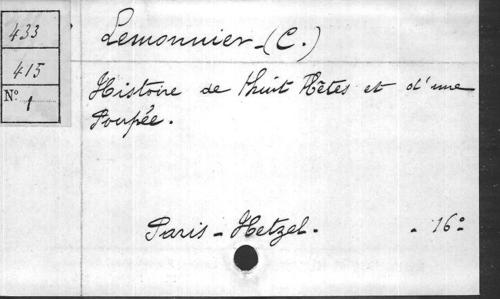 433
415
Nº 1
Lemonnier-(C.)
Histoire de huit Bêtes et d'une
Poupée.
Paris - Hetzel. - 16º